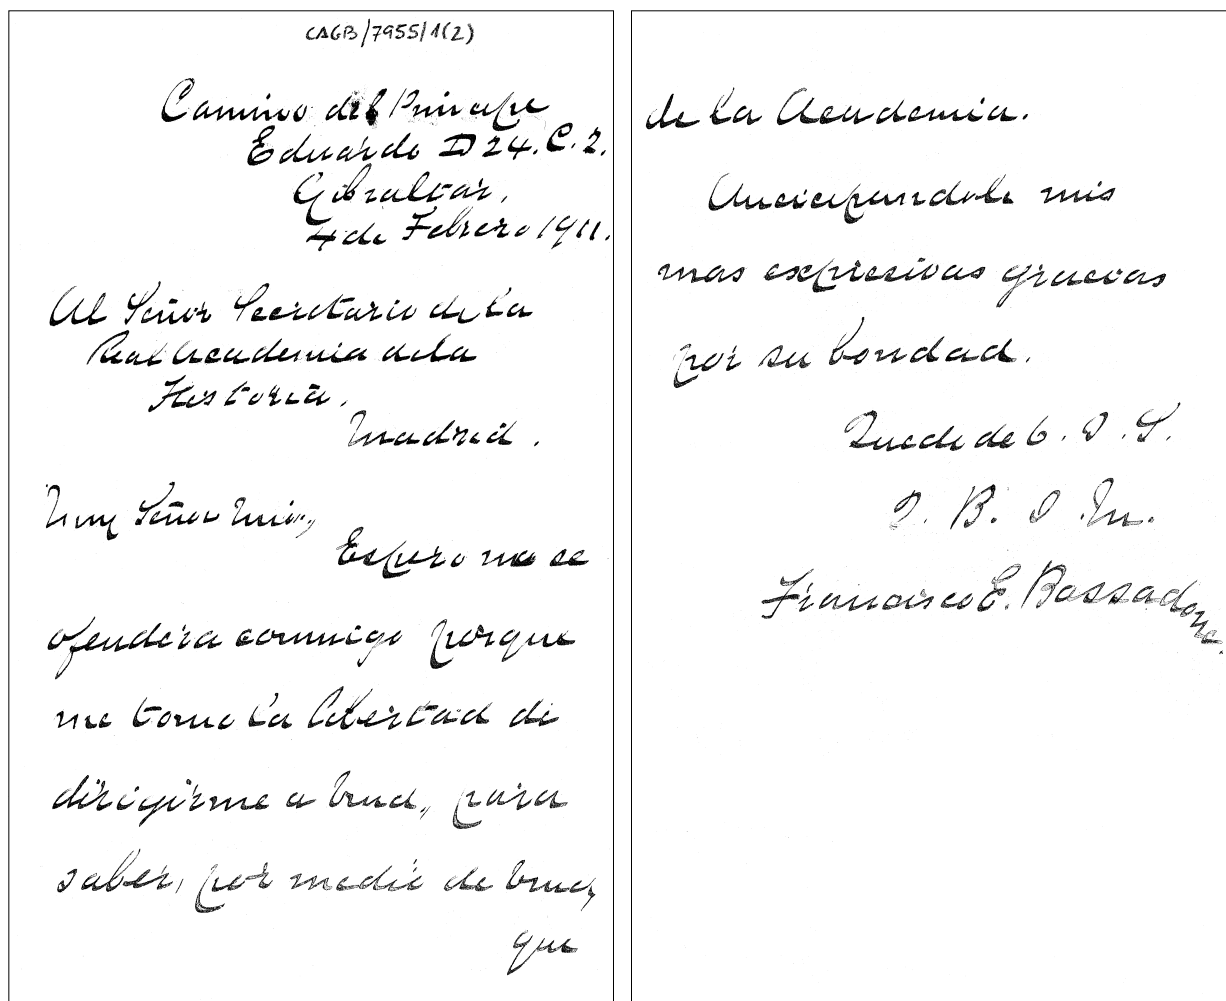 CAGB/7955/1(2)
Camino del Principe
Eduardo D 24. C. 2.
Gibraltar,
4 de Febrero 1911.
Al Señor Secretario de la
Real Academia de la
Historia.
Madrid.
Muy Señor Mio,
Espero no se
ofendera conmigo porque
me tomo la libertad de
dirigirme a Vmd, para
saber, por medio de Vmd,
que
de la Academia.
Anticipandole mis
mas expresivas gracias
por su bondad.
Quedo de V. S. S.
Q. B. S. M.
Francisco E. Bassadone.